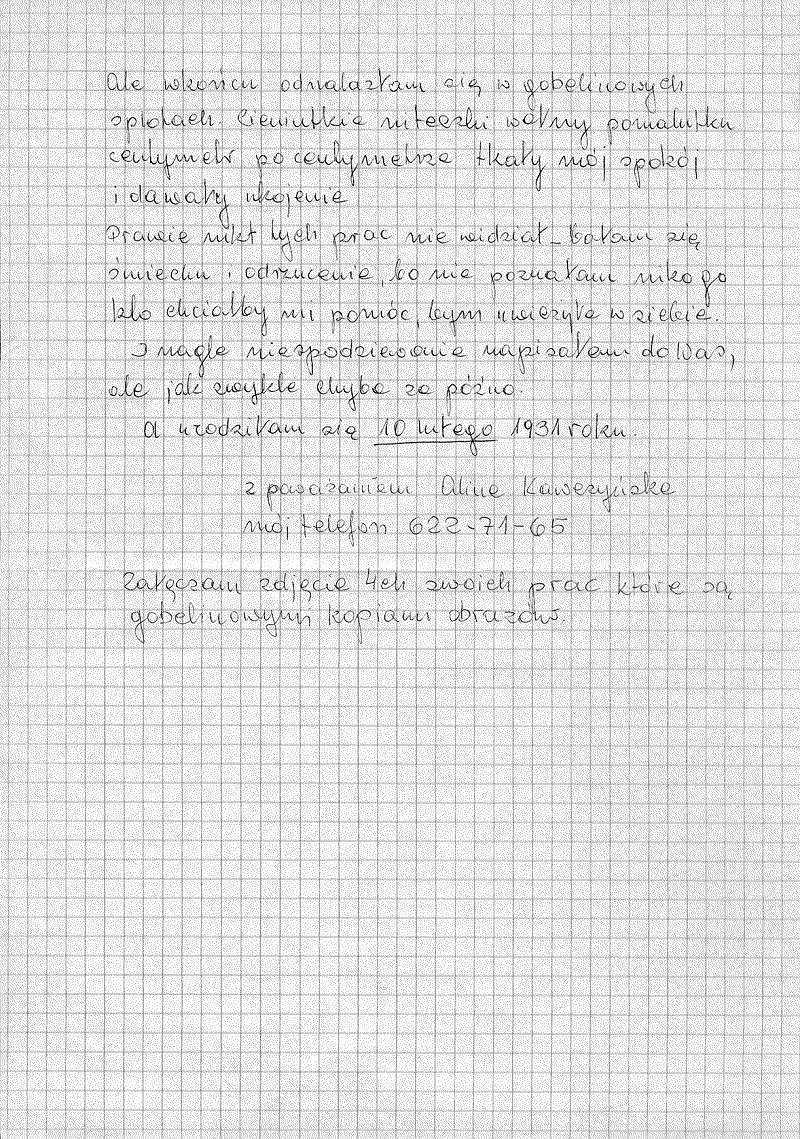 Ale wkońcu odnalazłam się w gobelinowych
splotach. Cieniutkie niteczki wełny pomalutku
centymetr po centymetrze tkały mój spokój
i dawały ukojenie
Prawie nikt tych prac nie widział – bałam się
śmiechu i odrzucenie, bo nie poznałam nikogo
kto chciałby mi pomóc, bym uwierzyła w siebie.
I nagle niespodziewanie napisałam do Was,
ale jak zwykle chyba za późno.
A urodziłam się 10 lutego 1931 roku.
z poważaniem Alina Kawczyńska
mój telefon 622-71-65
Załączam zdjęcie 4ch swoich prac które są
gobelinowymi kopiami obrazów.